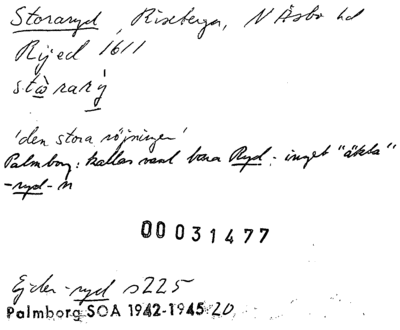 Storaryd, Riseberga, N Åsbo hd
Rijed 1611
stòrarý
'den stora röjningen'
Palmborg: kallas vanl bara Ryd; inget "äkta"
-ryd-n
00031477
Ejder -ryd s225
Palmborg SOA 1942-1945 20